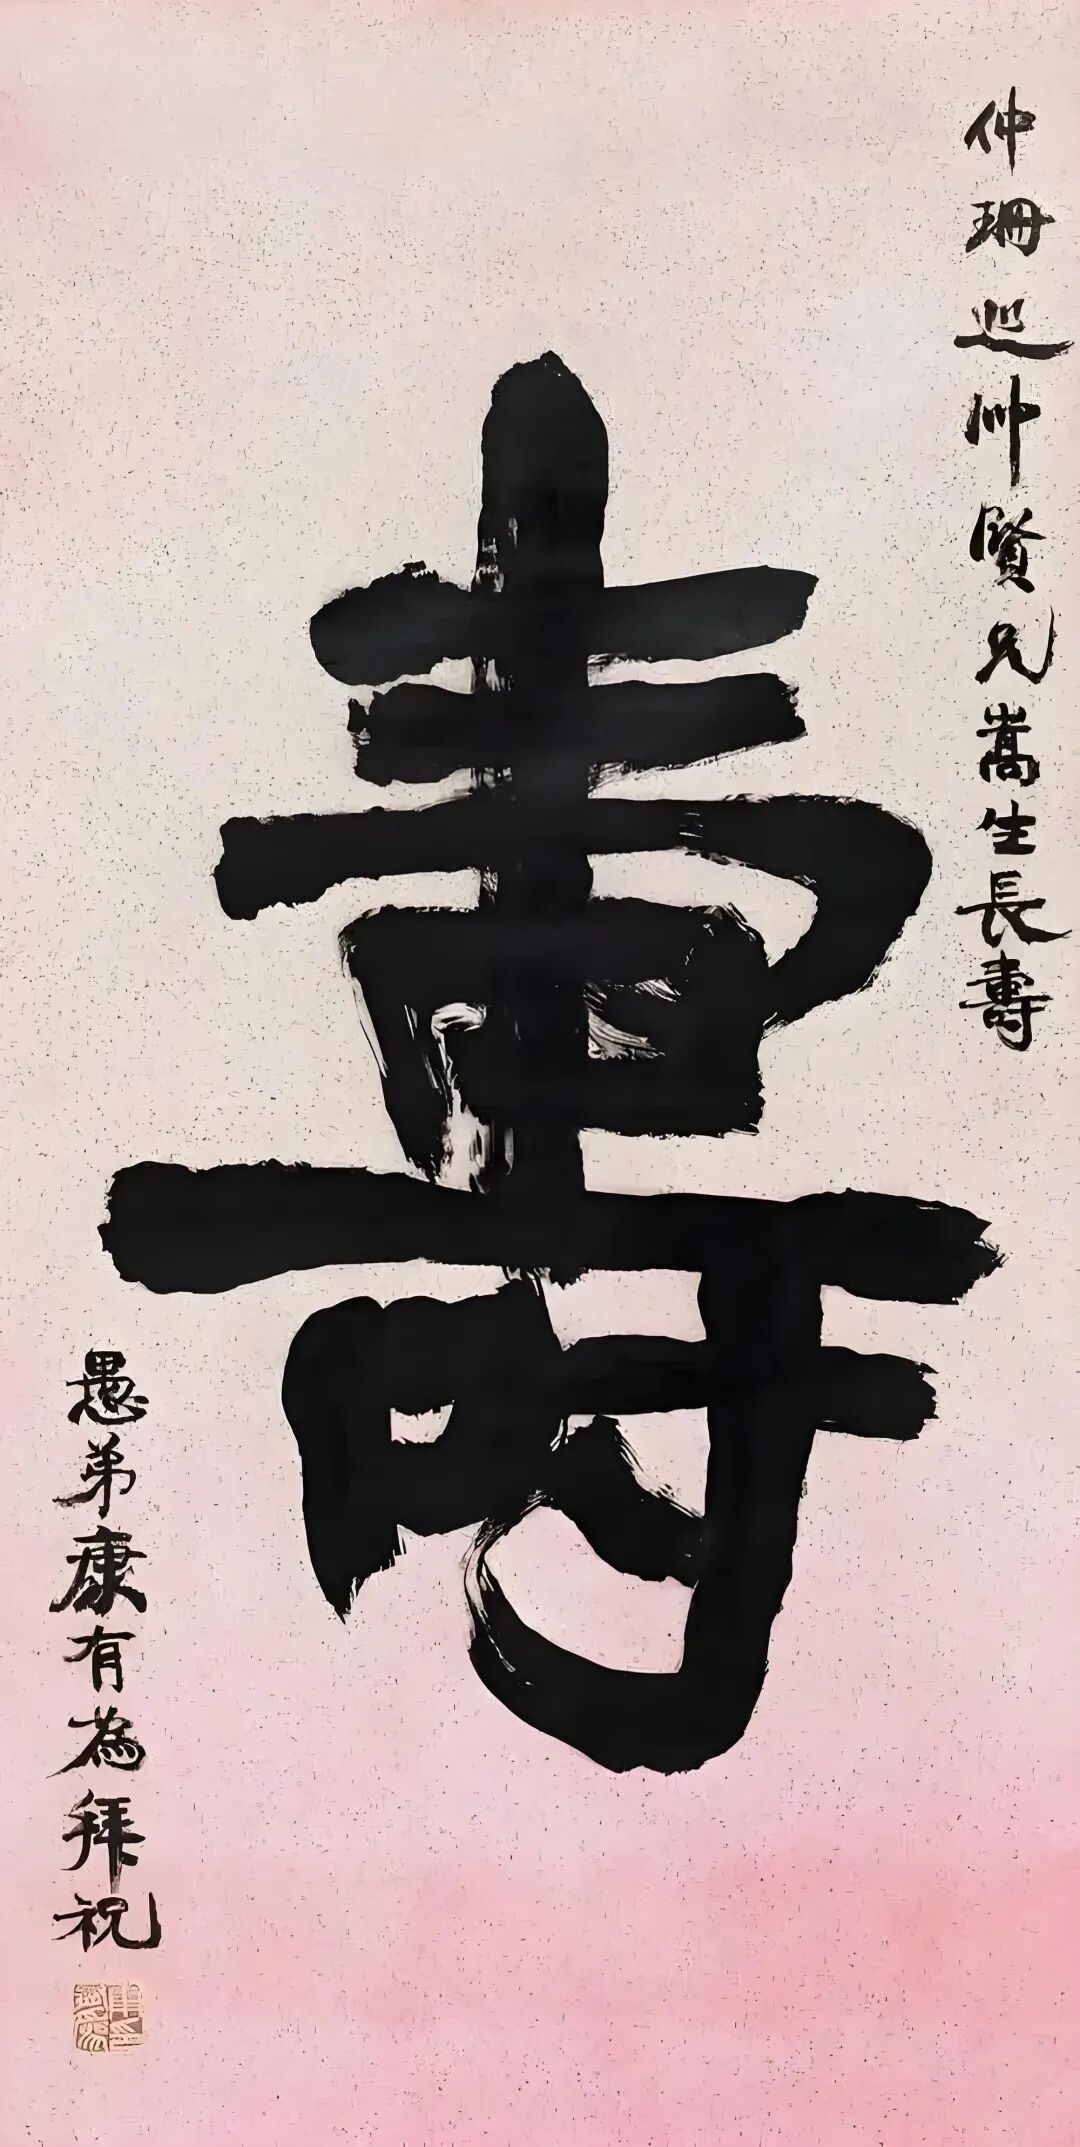 仲珊巡帅賢兄嵩生長壽
壽
愚弟康有為拜祝